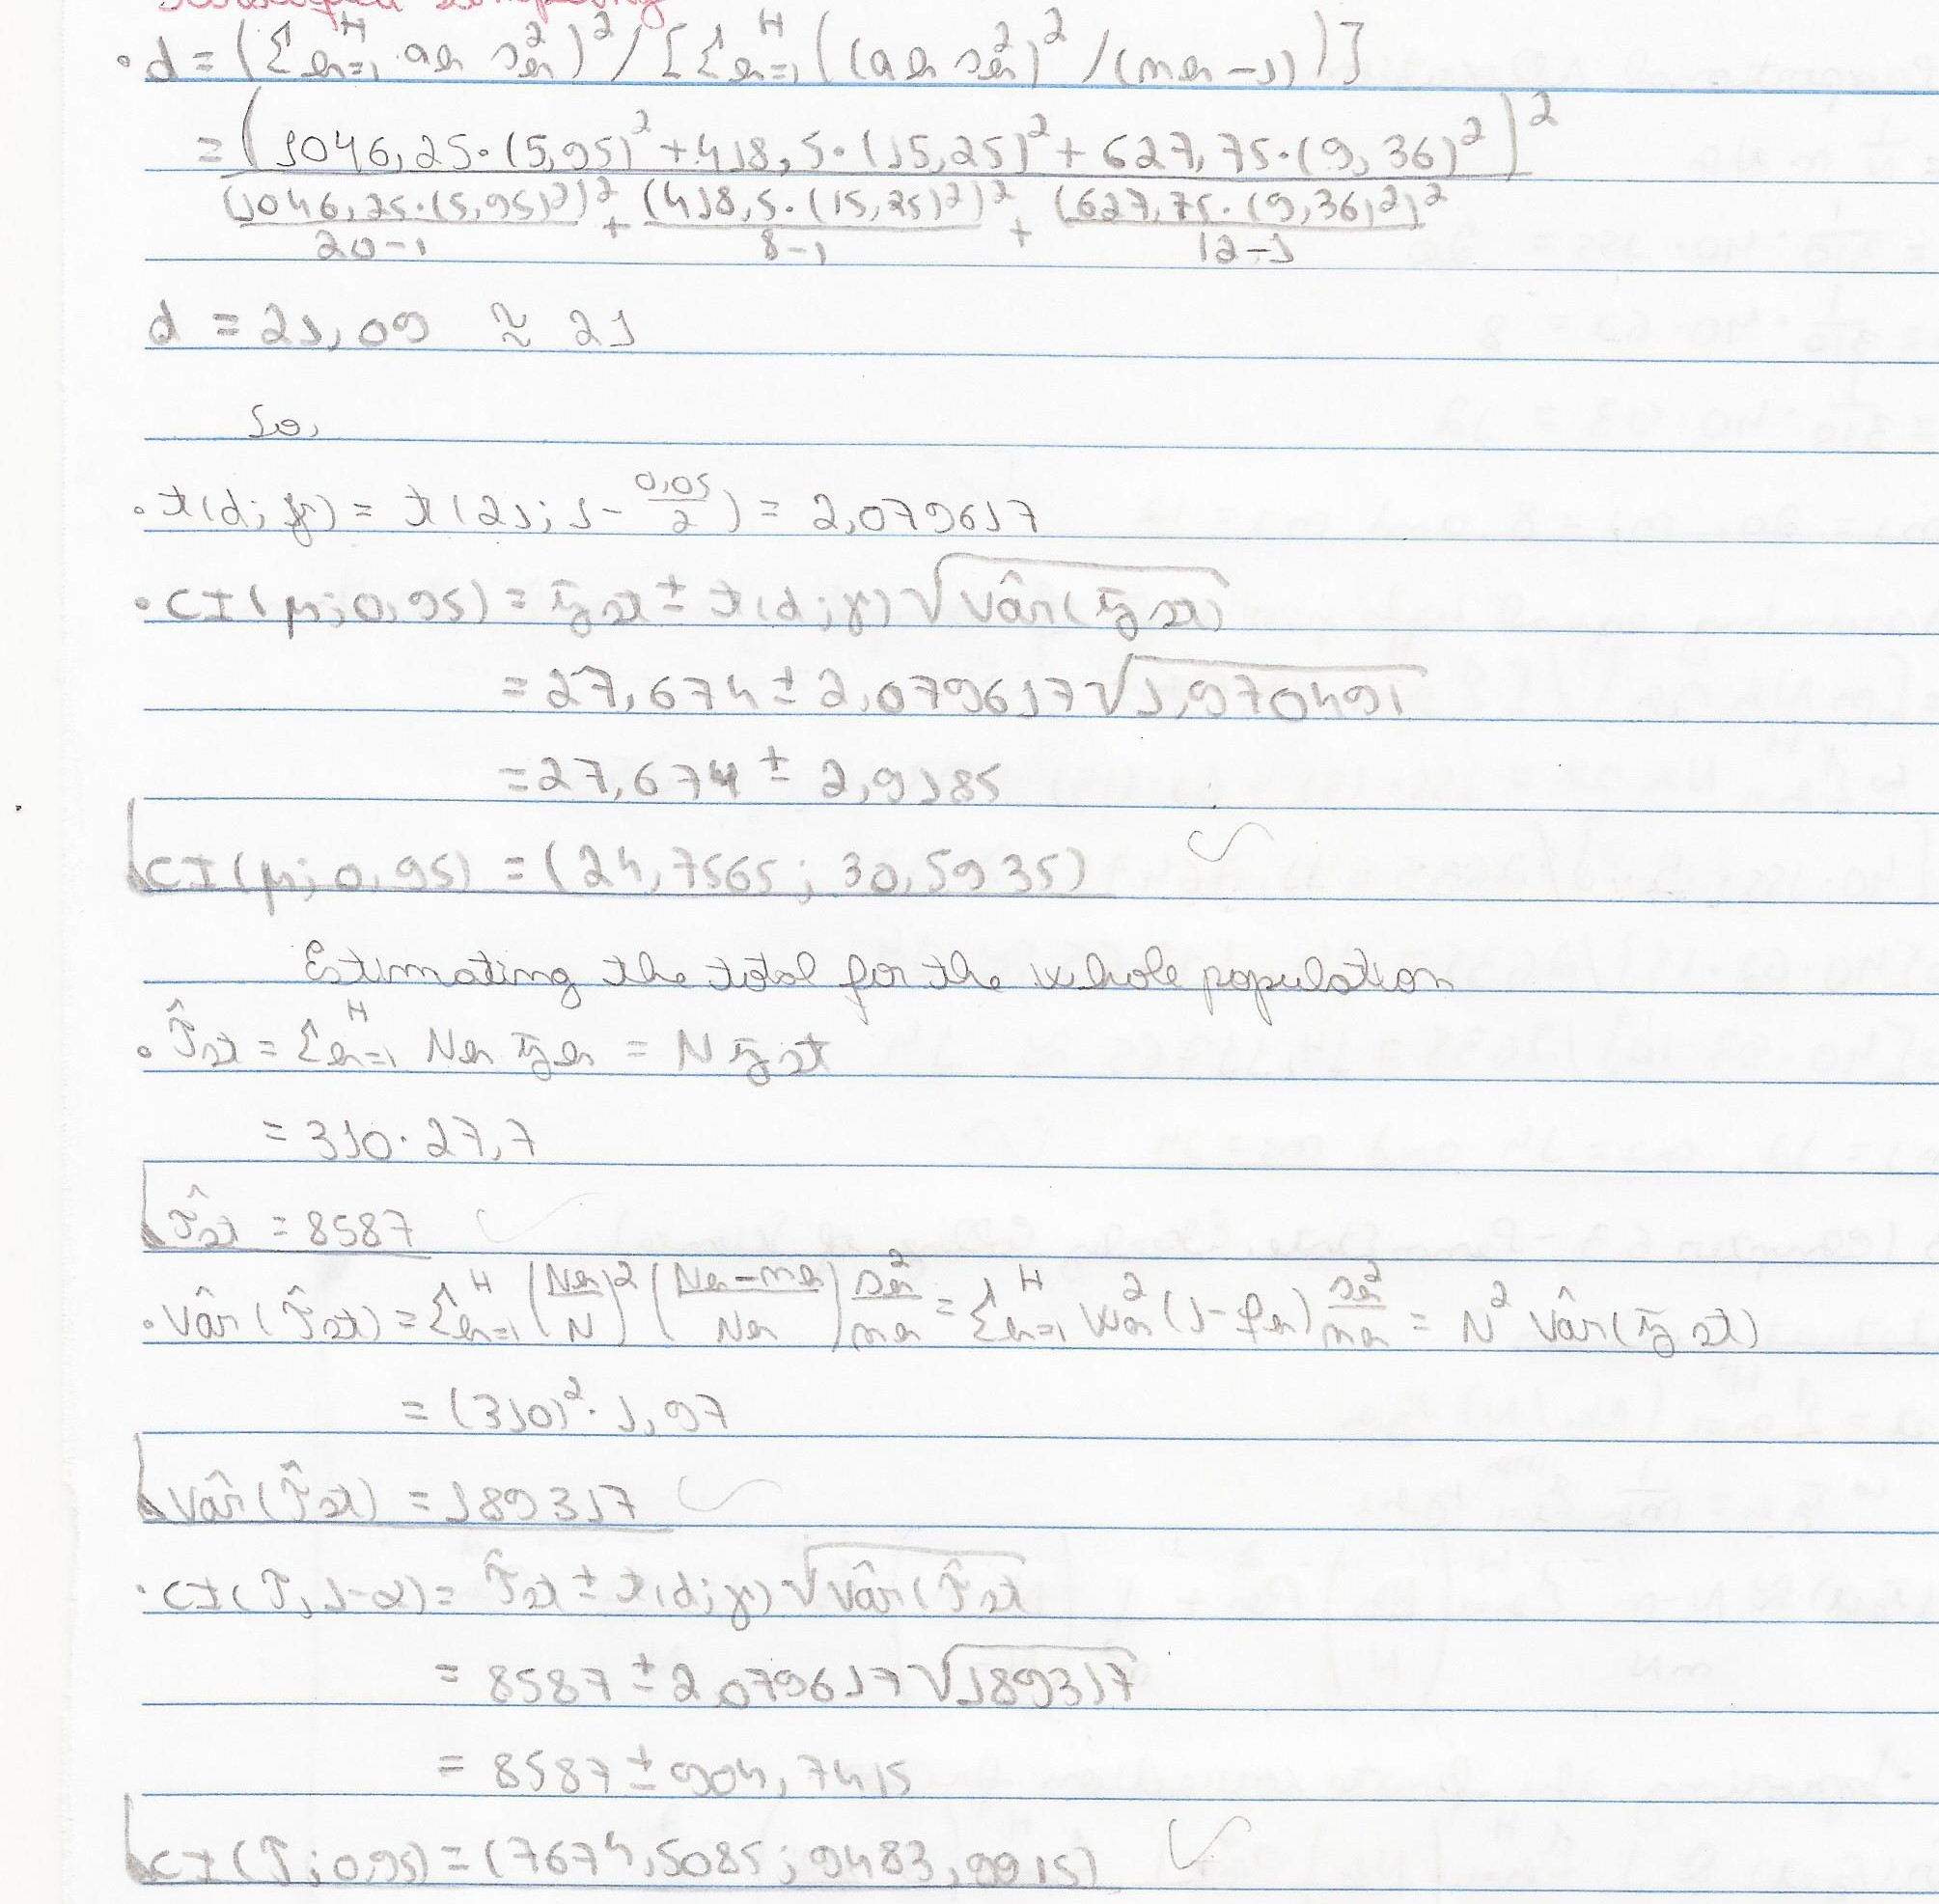 Stratified sampling
• d = (Σ_{h=1}^{H} a_h s_h^2)^2 / [Σ_{h=1}^{H} ((a_h s_h^2)^2 / (n_h - 1))]
= (1046,25·(5,95)^2 + 418,5·(15,25)^2 + 627,75·(9,36)^2)^2
(1046,25·(5,95)^2)^2 + (418,5·(15,25)^2)^2 + (627,75·(9,36)^2)^2
20-1 8-1 12-1
d = 21,09 ≈ 21
So,
• t(d; γ) = t(21; 1 - 0,05/2) = 2,079617
• CI(μ; 0,95) = ȳ_st ± t(d; γ)√vâr(ȳ_st)
= 27,674 ± 2,079617√1,970491
= 27,674 ± 2,9185
CI(μ; 0,95) = (24,7565; 30,5935) ✓
Estimating the total for the whole population
• τ̂_st = Σ_{h=1}^{H} N_h ȳ_h = N ȳ_st
= 310·27,7
τ̂_st = 8587 ✓
• Vâr(τ̂_st) = Σ_{h=1}^{H} (N_h/N)^2 ((N_h - n_h)/N_h) s_h^2/n_h = Σ_{h=1}^{H} W_h^2 (1 - f_h) s_h^2/n_h = N^2 Vâr(ȳ_st)
= (310)^2·1,97
Vâr(τ̂_st) = 189317 ✓
• CI(τ, 1-α) = τ̂_st ± t(d; γ)√Vâr(τ̂_st
= 8587 ± 2,079617√189317
= 8587 ± 904,7415
CI(τ; 0,95) = (7674,5085; 9483,9915) ✓